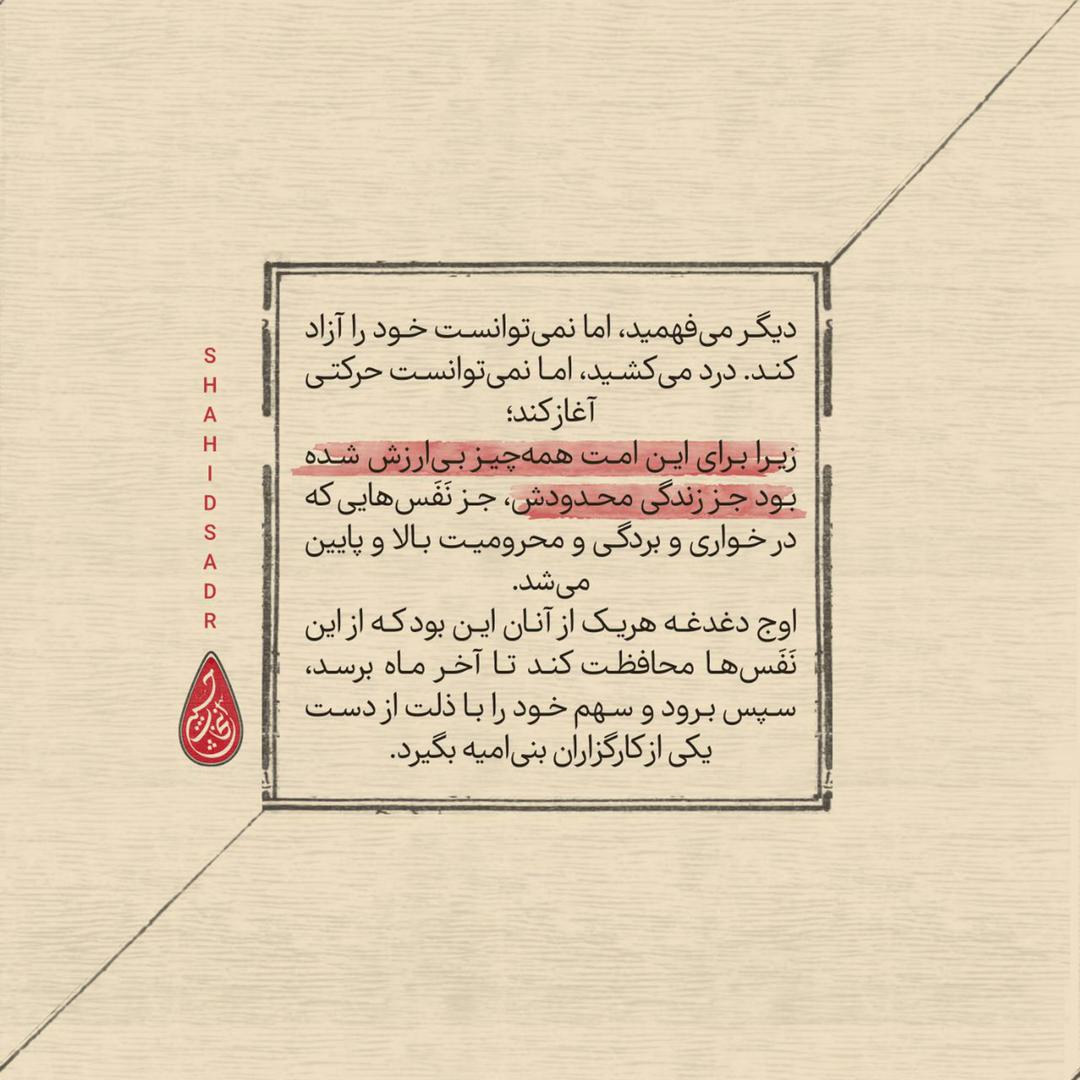 دیگر می‌فهمید، اما نمی‌توانست خود را آزاد
کند. درد می‌کشید، اما نمی‌توانست حرکتی
آغاز کند؛
زیرا برای این امت همه‌چیز بی‌ارزش شده
بود جز زندگی محدودش، جز نَفَس‌هایی که
در خواری و بردگی و محرومیت بالا و پایین
می‌شد.
اوج دغدغه هریک از آنان این بود که از این
نَفَس‌ها محافظت کند تا آخر ماه برسد،
سپس برود و سهم خود را با ذلت از دست
یکی از کارگزاران بنی‌امیه بگیرد.
SHAHIDSADR